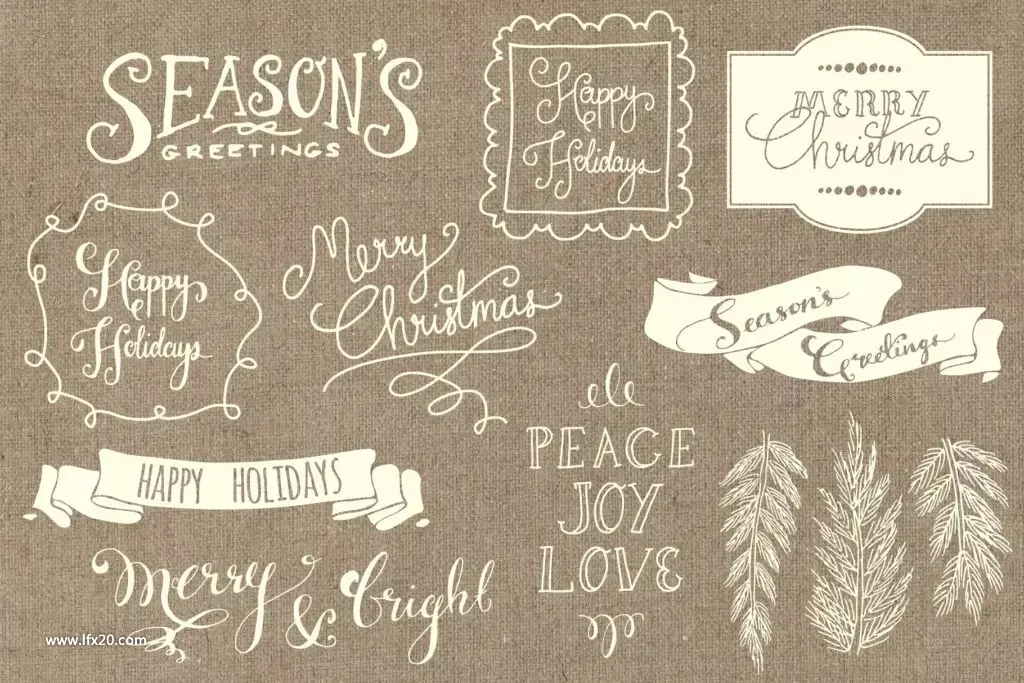 SEASON'S
GREETINGS
Happy
Holidays
MERRY
Christmas
Happy
Holidays
Merry
Christmas
Season's
Greetings
PEACE
JOY
LOVE
HAPPY HOLIDAYS
Merry & bright
www.lfx20.com